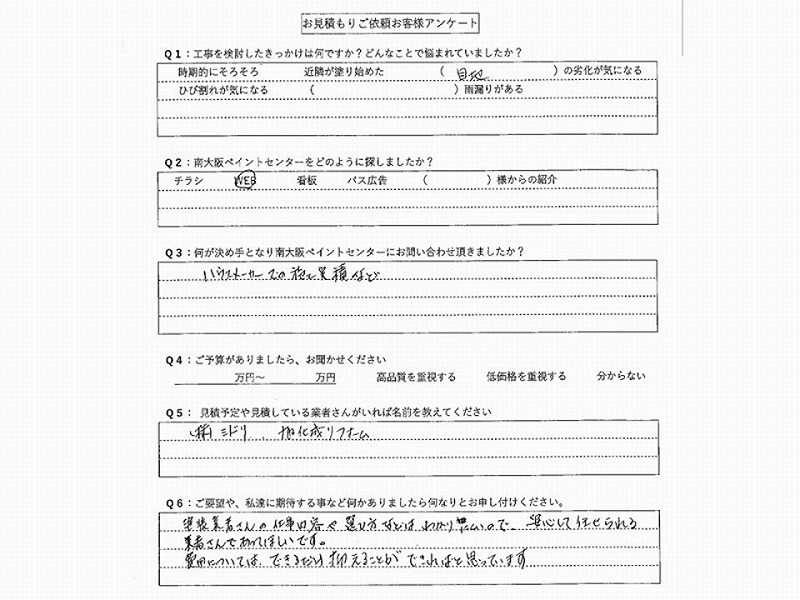 お見積もりご依頼お客様アンケート
Q1：工事を検討したきっかけは何ですか？どんなことで悩まれていましたか？
時期的にそろそろ 近隣が塗り始めた （ 目地 ）の劣化が気になる
ひび割れが気になる （ ）雨漏りがある
Q2：南大阪ペイントセンターをどのように探しましたか？
チラシ WEB 看板 バス広告 （ ）様からの紹介
Q3：何が決め手となり南大阪ペイントセンターにお問い合わせ頂きましたか？
ハウスメーカーでの施工実績など
Q4：ご予算がありましたら、お聞かせください
万円～ 万円 高品質を重視する 低価格を重視する 分からない
Q5： 見積予定や見積している業者さんがいれば名前を教えてください
(株)ミドリ、旭化成リフォーム
Q6：ご要望や、私達に期待する事など何かありましたら何なりとお申し付けください。
塗装業者さんの仕事内容や選び方などはわかり難いので、安心して任せられる
業者さんであってほしいです。
費用については、できるだけ抑えることができればと思っています